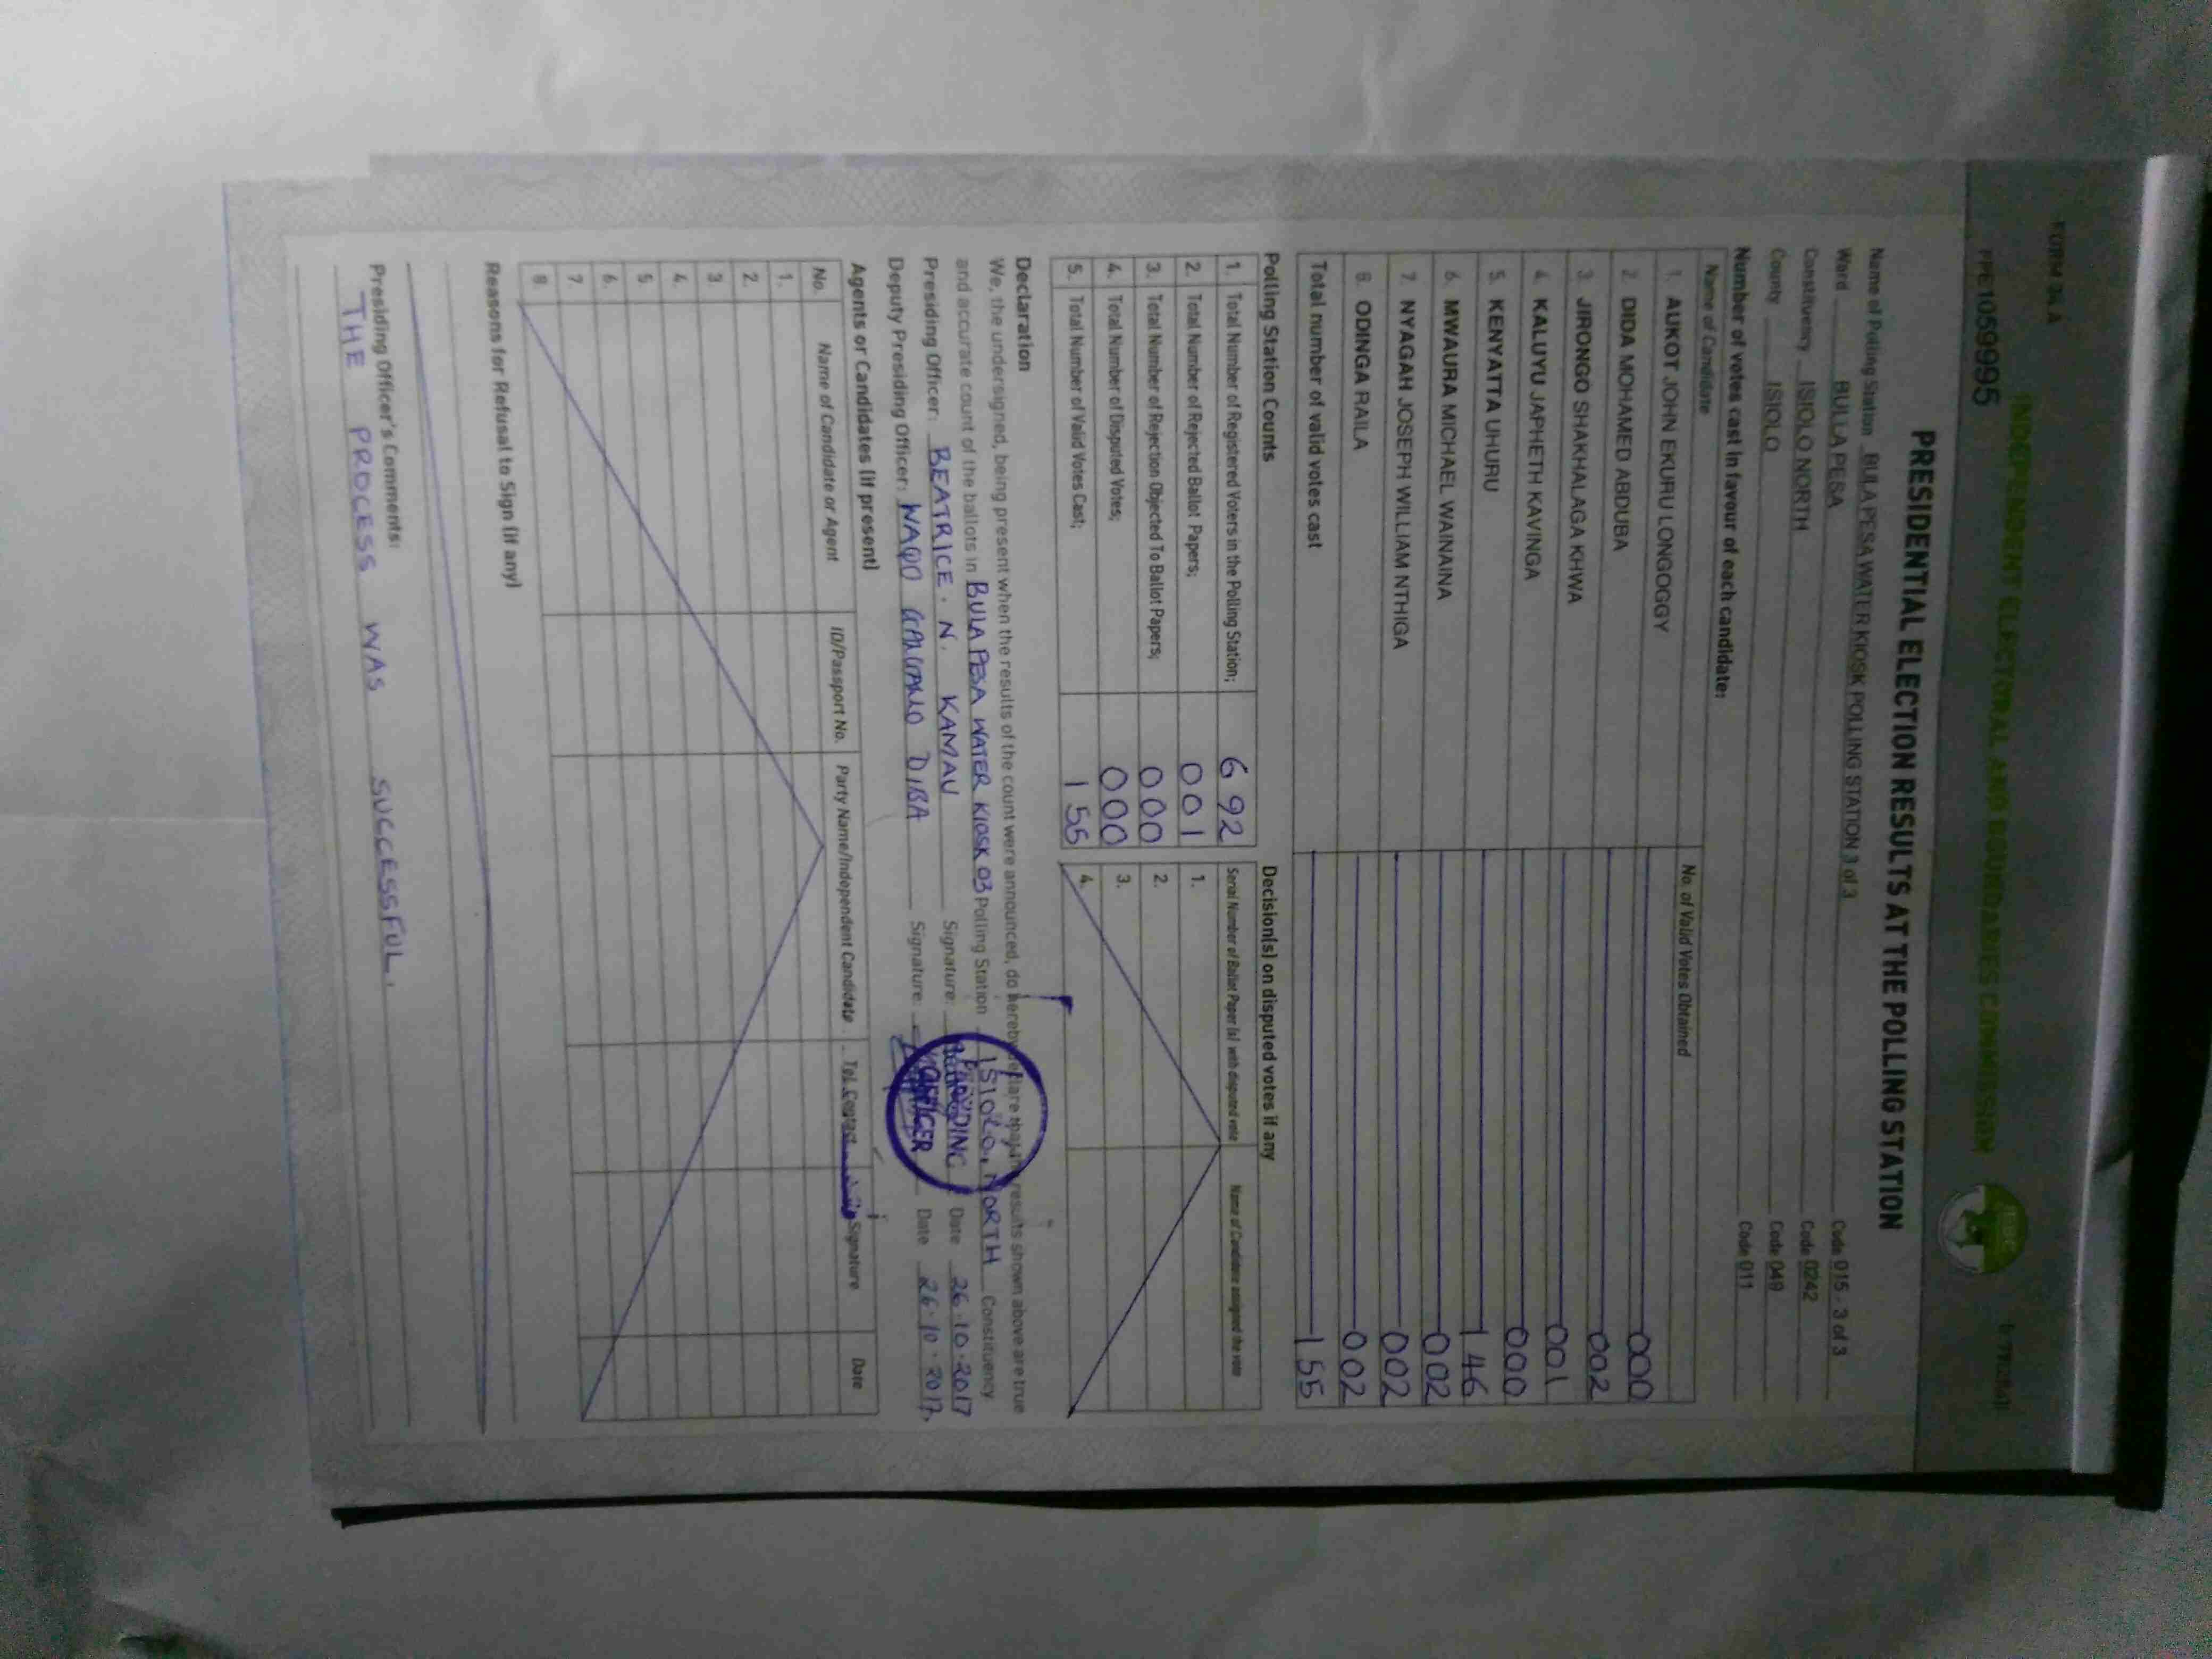 FORM 34 A
INDEPENDENT ELECTORAL AND BOUNDARIES COMMISSION
PPE1059995
PRESIDENTIAL ELECTION RESULTS AT THE POLLING STATION
Name of Polling Station BULA PESA WATER KIOSK POLLING STATION 3 of 3 Code 015 - 3 of 3
Ward BULLA PESA Code 0242
Constituency ISIOLO NORTH Code 049
County ISIOLO Code 011
Number of votes cast in favour of each candidate:
Name of Candidate No. of Valid Votes Obtained
1. AUKOT JOHN EKURU LONGOGGY 000
2. DIDA MOHAMED ABDUBA 002
3. JIRONGO SHAKHALAGA KHWA 001
4. KALUYU JAPHETH KAVINGA 000
5. KENYATTA UHURU 146
6. MWAURA MICHAEL WAINAINA 002
7. NYAGAH JOSEPH WILLIAM NTHIGA 002
8. ODINGA RAILA 002
Total number of valid votes cast 155
Polling Station Counts Decision(s) on disputed votes if any
1. Total Number of Registered Voters in the Polling Station; 692 Serial Number of Ballot Paper (s) with disputed vote Name of Candidate assigned the vote
2. Total Number of Rejected Ballot Papers; 001 1.
3. Total Number of Rejection Objected To Ballot Papers; 000 2.
4. Total Number of Disputed Votes; 000 3.
5. Total Number of Valid Votes Cast; 155 4.
Declaration
We, the undersigned, being present when the results of the count were announced, do hereby declare that the results shown above are true
and accurate count of the ballots in BULA PESA WATER KIOSK 03 Polling Station ISIOLO NORTH Constituency
Presiding Officer: BEATRICE. N. KAMAU Signature: Date 26.10.2017
Deputy Presiding Officer: WAQO DIBA Signature: Date 26.10.2017
PRESIDING
OFFICER
Agents or Candidates (if present)
No. Name of Candidate or Agent ID/Passport No. Party Name/Independent Candidate Tel. Contact Signature Date
1.
2.
3.
4.
5.
6.
7.
8.
Reasons for Refusal to Sign (if any)
Presiding Officer's Comments:
THE PROCESS WAS SUCCESSFUL.